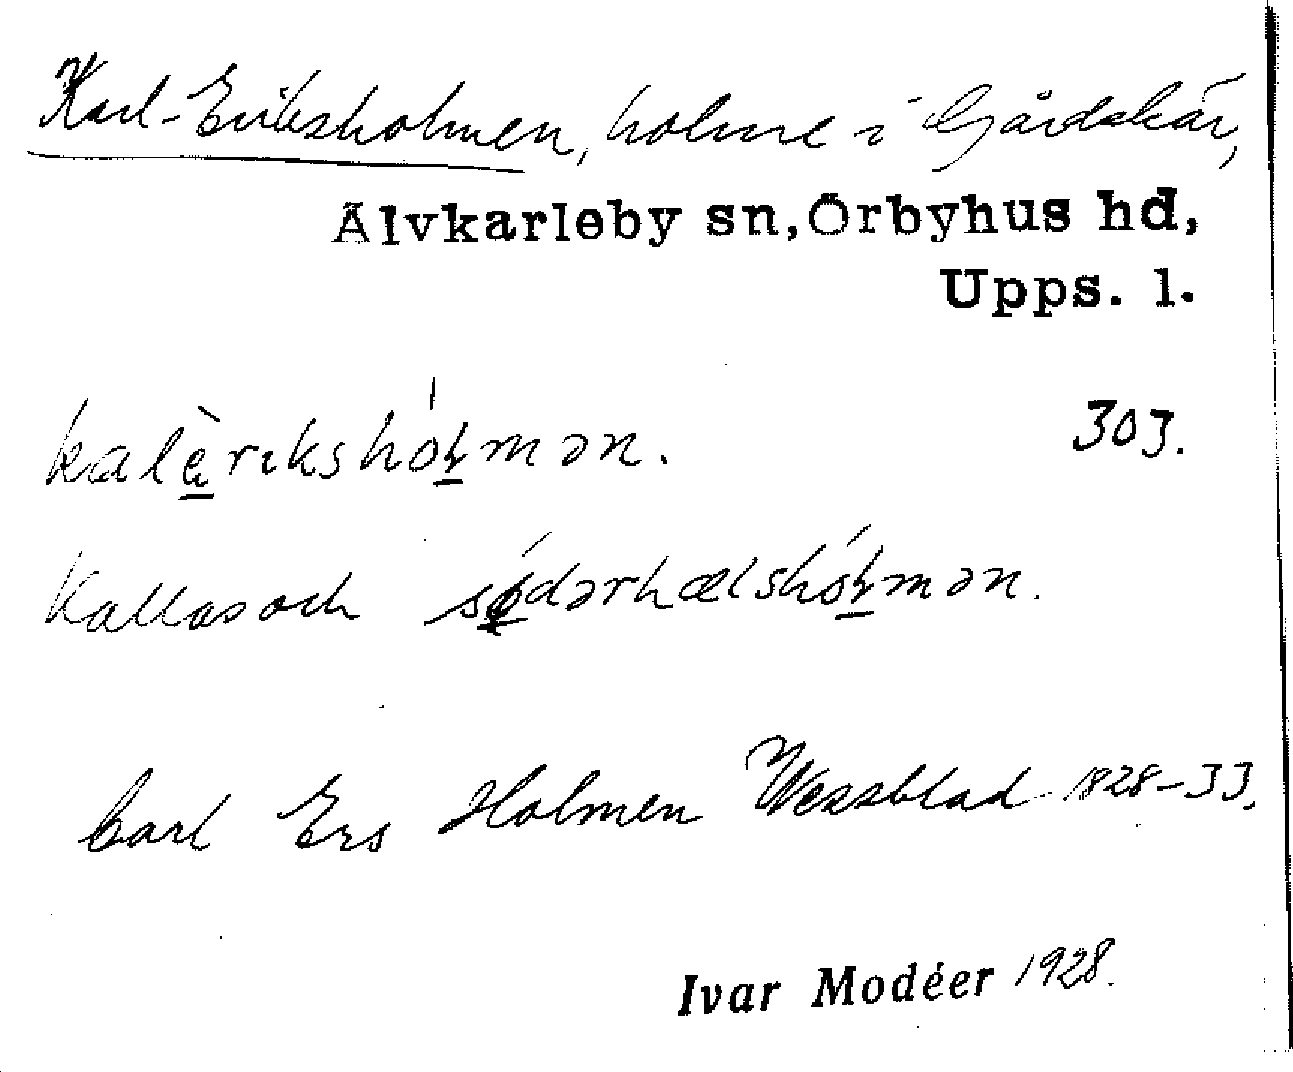 Karl-Eriksholmen, holme i Gårdskär,
Älvkarleby sn, Örbyhus hd,
Upps. l.
kalèrıkshóɫmən. 303.
Kallas och sǿdərhælshóɫmən.
Carl Ers Holmen Wessblad 1828-33.
Ivar Modéer 1928.